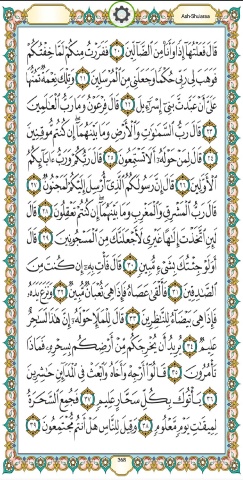 Ash-Shuaraa
قَالَ فَعَلْتُهَا إِذًا وَأَنَا مِنَ الضَّالِّينَ ٢٠ فَفَرَرْتُ مِنكُمْ لَمَّا خِفْتُكُمْ
فَوَهَبَ لِي رَبِّي حُكْمًا وَجَعَلَنِي مِنَ الْمُرْسَلِينَ ٢١ وَتِلْكَ نِعْمَةٌ تَمُنُّهَا
عَلَيَّ أَنْ عَبَّدتَّ بَنِي إِسْرَائِيلَ ٢٢ قَالَ فِرْعَوْنُ وَمَا رَبُّ الْعَالَمِينَ
٢٣ قَالَ رَبُّ السَّمَاوَاتِ وَالْأَرْضِ وَمَا بَيْنَهُمَا إِن كُنتُم مُّوقِنِينَ
٢٤ قَالَ لِمَنْ حَوْلَهُ أَلَا تَسْتَمِعُونَ ٢٥ قَالَ رَبُّكُمْ وَرَبُّ آبَائِكُمُ
الْأَوَّلِينَ ٢٦ قَالَ إِنَّ رَسُولَكُمُ الَّذِي أُرْسِلَ إِلَيْكُمْ لَمَجْنُونٌ ٢٧
قَالَ رَبُّ الْمَشْرِقِ وَالْمَغْرِبِ وَمَا بَيْنَهُمَا إِن كُنتُمْ تَعْقِلُونَ ٢٨ قَالَ
لَئِنِ اتَّخَذْتَ إِلَٰهًا غَيْرِي لَأَجْعَلَنَّكَ مِنَ الْمَسْجُونِينَ ٢٩ قَالَ
أَوَلَوْ جِئْتُكَ بِشَيْءٍ مُّبِينٍ ٣٠ قَالَ فَأْتِ بِهِ إِن كُنتَ مِنَ
الصَّادِقِينَ ٣١ فَأَلْقَىٰ عَصَاهُ فَإِذَا هِيَ ثُعْبَانٌ مُّبِينٌ ٣٢ وَنَزَعَ يَدَهُ
فَإِذَا هِيَ بَيْضَاءُ لِلنَّاظِرِينَ ٣٣ قَالَ لِلْمَلَإِ حَوْلَهُ إِنَّ هَٰذَا لَسَاحِرٌ
عَلِيمٌ ٣٤ يُرِيدُ أَن يُخْرِجَكُم مِّنْ أَرْضِكُم بِسِحْرِهِ فَمَاذَا
تَأْمُرُونَ ٣٥ قَالُوا أَرْجِهْ وَأَخَاهُ وَابْعَثْ فِي الْمَدَائِنِ حَاشِرِينَ
٣٦ يَأْتُوكَ بِكُلِّ سَحَّارٍ عَلِيمٍ ٣٧ فَجُمِعَ السَّحَرَةُ
لِمِيقَاتِ يَوْمٍ مَّعْلُومٍ ٣٨ وَقِيلَ لِلنَّاسِ هَلْ أَنتُم مُّجْتَمِعُونَ ٣٩
368